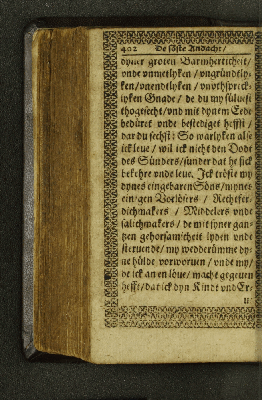 402 De söste Andacht /
dyner groten Barmherticheit /
vnde vnmetlyken / vngründtly-
ken / vnendtlyken / vnvthsprick-
lyken Gnade / de du my süluest
thogesecht / vnd mit dynem Eede
bedüret vnde bestediget hefft /
dar du sechst: So warlyken alse
ick leue / wil ick nicht den Dode
des Sünders / sunder dat he sick
bekehre vnde leue. Ick tröste my
dynes eingebaren Söns / mynes
einigen Vorlösers / Rechtfer-
dichmakers / Middelers vnde
salichmakers / de mit syner gan-
tzen gehorsamicheit lyden vnde
steruende / my wedderümme dy-
ne hülde vorworuen / vnde my /
de ick an en löue / macht gegeuen
hefft / dat ick dyn Kindt vnd Er-